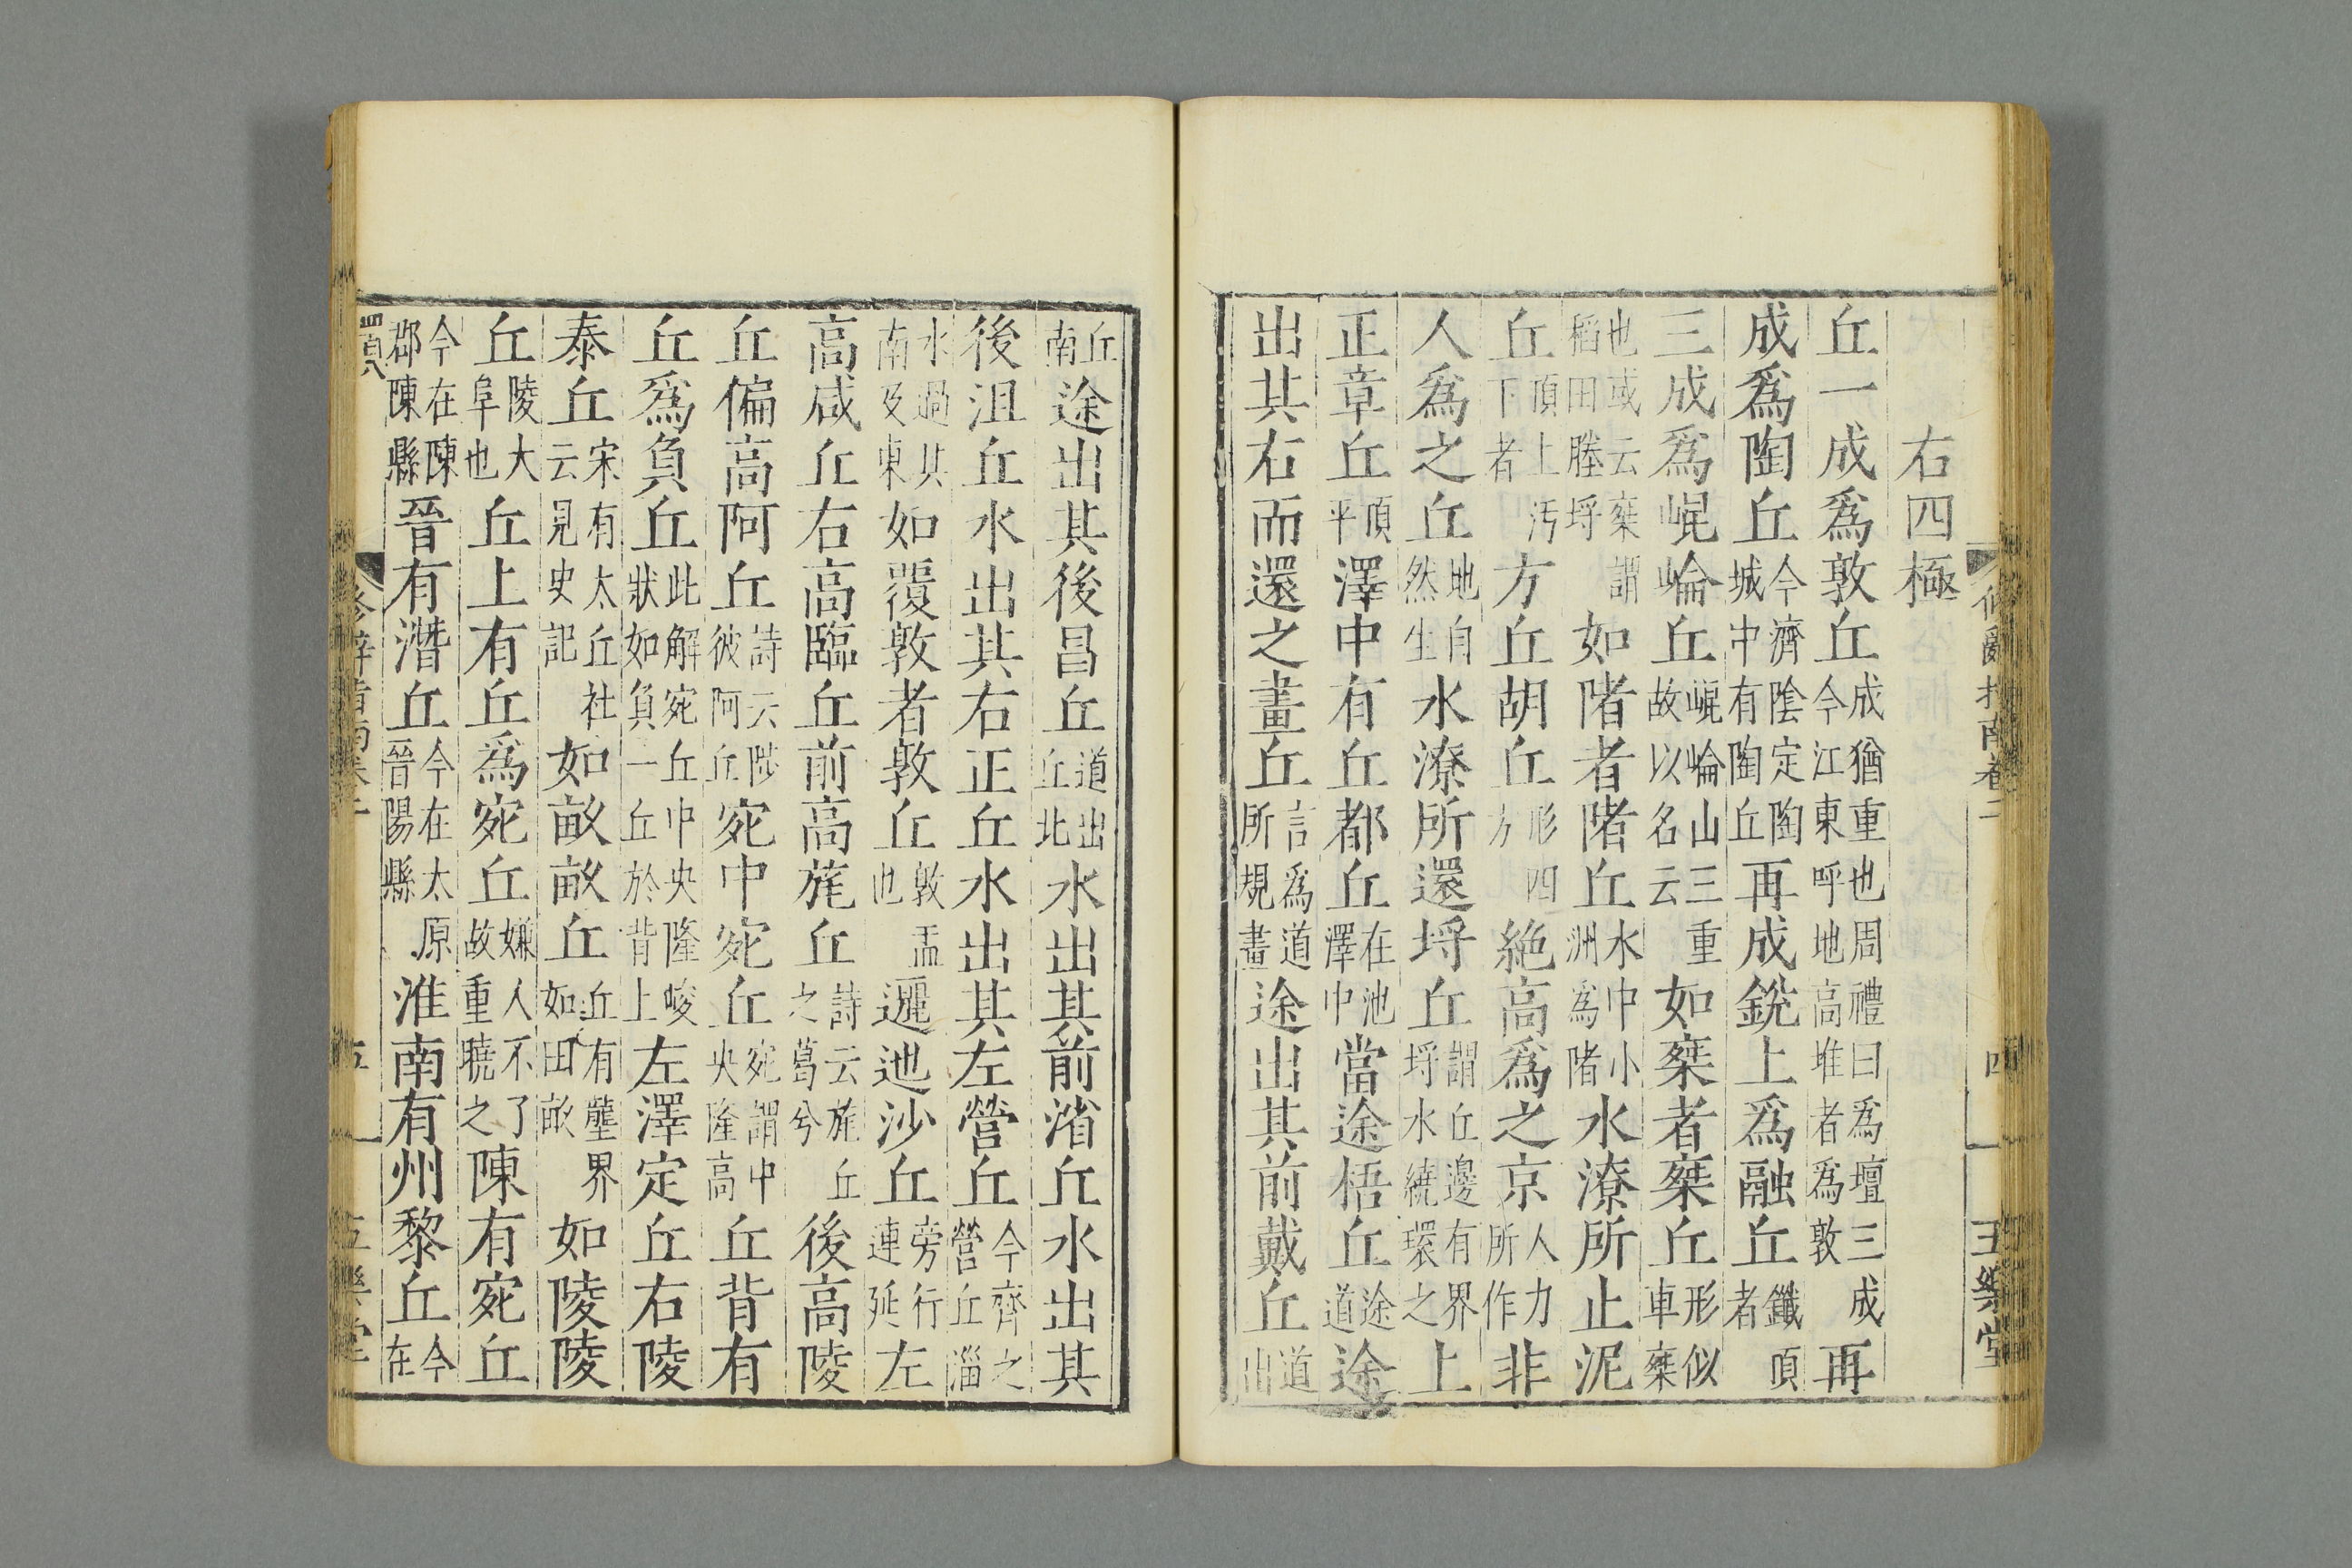 修辭指南卷二 四 五樂堂
右四極
丘一成爲敦丘成猶重也周禮曰爲壇三成今江東呼地高堆者爲敦再
成爲陶丘今濟陰定陶城中有陶丘再成銳上爲融丘鑯頂者
三成爲崐崘丘崐崘山三重故以名云如椉者椉丘形似車椉
也或云椉謂稻田塍埒如陼者陼丘水中小洲爲陼水潦所止泥
丘頂上汚下者方丘胡丘形四方絶高爲之京人力所作非
人爲之丘地自然生水潦所還埒丘謂丘邊有界埒水繞環之上
正章丘頂平澤中有丘都丘在池澤中當途梧丘途道途
出其右而還之畫丘言爲道所規畫途出其前戴丘道出
丘南途出其後昌丘道出丘北水出其前渻丘水出其
後沮丘水出其右正丘水出其左營丘今齊之營丘淄
水過其南及東如覆敦者敦丘敦盂也邐迆沙丘旁行連延左
高咸丘右高臨丘前高旄丘詩云旄丘之葛兮後高陵
丘偏高阿丘詩云陟彼阿丘宛中宛丘宛謂中央隆高丘背有
丘爲負丘此解宛丘中央隆峻狀如負一丘於背上左澤定丘右陵
泰丘宋有太丘社云見史記如畝畝丘丘有壟界如田畝如陵陵
丘陵大阜也丘上有丘爲宛丘嫌人不了故重曉之陳有宛丘
今在陳郡陳縣晉有潛丘今在太原晉陽縣淮南有州黎丘今在
修辭指南卷二 五 五樂堂